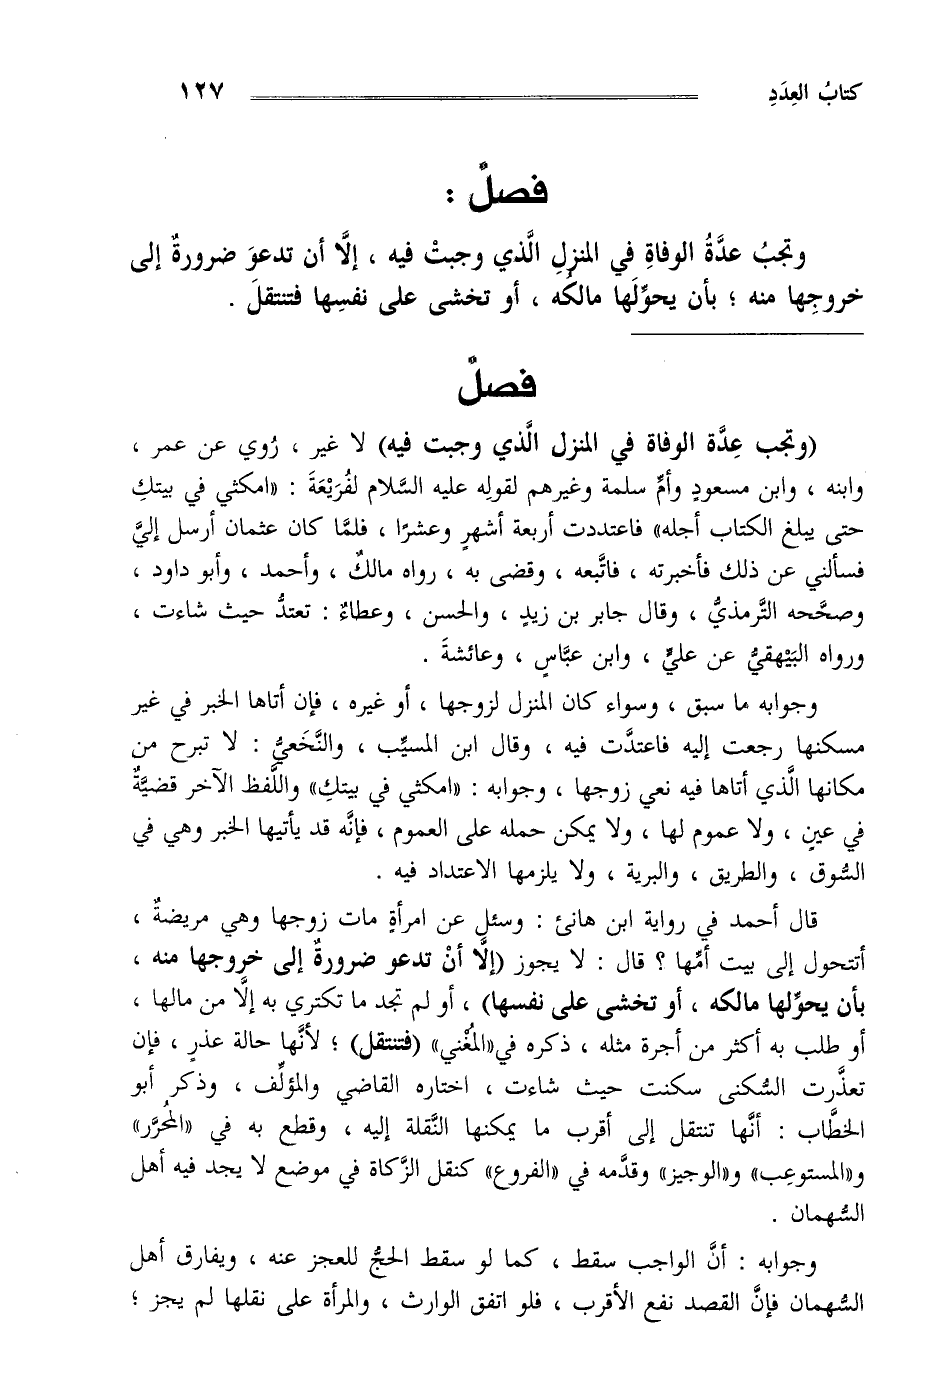 كتابُ العِدَدِ ١٢٧
فصلٌ :
وتجبُ عدَّةُ الوفاةِ في المنزلِ الَّذي وجبتْ فيه ، إلَّا أن تدعوَ ضرورةٌ إلى
خروجِها منه ؛ بأن يحوِّلَها مالكُه ، أو تخشى على نفسِها فتنتقلَ .
فصلٌ
(وتجب عِدَّة الوفاة في المنزل الَّذي وجبت فيه) لا غير ، رُوي عن عمر ،
وابنه ، وابن مسعودٍ وأمِّ سلمة وغيرهم لقولِه عليه السَّلام لفُرَيْعَةَ : «امكثي في بيتكِ
حتى يبلغ الكتاب أجله» فاعتددت أربعة أشهرٍ وعشرًا ، فلمَّا كان عثمان أرسل إليَّ
فسألني عن ذلك فأخبرته ، فاتَّبعه ، وقضى به ، رواه مالكٌ ، وأحمد ، وأبو داود ،
وصحَّحه التِّرمذيُّ ، وقال جابر بن زيدٍ ، والحسن ، وعطاءٌ : تعتدُّ حيث شاءت ،
ورواه البَيْهقيُّ عن عليٍّ ، وابن عبَّاسٍ ، وعائشةَ .
وجوابه ما سبق ، وسواء كان المنزل لزوجها ، أو غيره ، فإن أتاها الخبر في غير
مسكنها رجعت إليه فاعتدَّت فيه ، وقال ابن المسيِّب ، والنَّخَعيُّ : لا تبرح من
مكانها الَّذي أتاها فيه نعي زوجها ، وجوابه : «امكثي في بيتكِ» واللَّفظ الآخر قضيَّةٌ
في عينٍ ، ولا عموم لها ، ولا يمكن حمله على العموم ، فإنَّه قد يأتيها الخبر وهي في
السُّوق ، والطريق ، والبرية ، ولا يلزمها الاعتداد فيه .
قال أحمد في رواية ابن هانئ : وسئل عن امرأةٍ مات زوجها وهي مريضةٌ ،
أتتحول إلى بيت أمِّها ؟ قال : لا يجوز (إلَّا أنْ تدعو ضرورةٌ إلى خروجها منه ،
بأن يحوِّلها مالكه ، أو تخشى على نفسها) ، أو لم تجد ما تكتري به إلَّا من مالها ،
أو طلب به أكثر من أجرة مثله ، ذكره في«المُغْني» (فتنتقل) ؛ لأنَّها حالة عذرٍ ، فإن
تعذَّرت السُّكنى سكنت حيث شاءت ، اختاره القاضي والمؤلِّف ، وذكر أبو
الخطَّاب : أنَّها تنتقل إلى أقرب ما يمكنها النَّقلة إليه ، وقطع به في «المُحرَّر»
و«المستوعِب» و«الوجيز» وقدَّمه في «الفروع» كنقل الزَّكاة في موضع لا يجد فيه أهل
السُّهمان .
وجوابه : أنَّ الواجب سقط ، كما لو سقط الحجُّ للعجز عنه ، ويفارق أهل
السُّهمان فإنَّ القصد نفع الأقرب ، فلو اتفق الوارث ، والمرأة على نقلها لم يجز ؛